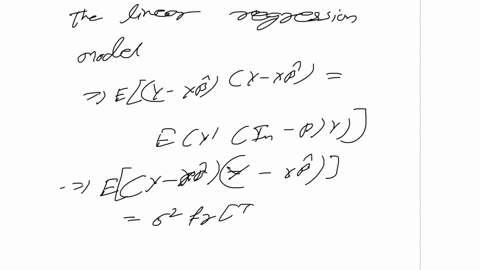 The linear regression
model
=> E[(Y - xβ̂) (Y - xβ̂) =
E(Y' (In - P) Y)]
=> E[(Y - xβ̂)(Y - xβ̂)]
= σ² tr[I